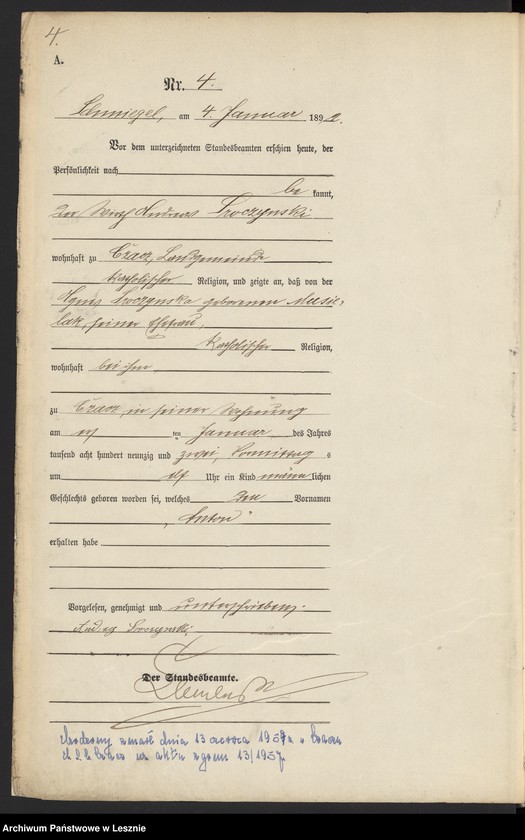 4.
A.
Nr. 4.
Schmiegel, am 4. Januar 1892.
Vor dem unterzeichneten Standesbeamten erschien heute, der
Persönlichkeit nach
be kannt,
der Wirth Andreas Sroczynski
wohnhaft zu Czacz, Landgemeinde
katholischer Religion, und zeigte an, daß von der
Agnes Sroczynska geborenen Musie-
lak, seiner Ehefrau,
katholischer Religion,
wohnhaft bei ihm
zu Czacz, in seiner Wohnung
am ten Januar des Jahres
tausend acht hundert neunzig und zwei, Vormittag s
um elf Uhr ein Kind männ lichen
Geschlechts geboren worden sei, welches den Vornamen
„Anton“
erhalten habe
Vorgelesen, genehmigt und unterschrieben.
Sroczynski
Der Standesbeamte.
zmarł dnia 13 czerwca 1957 r. w
akt zgonu 13/1957
Archiwum Państwowe w Lesznie